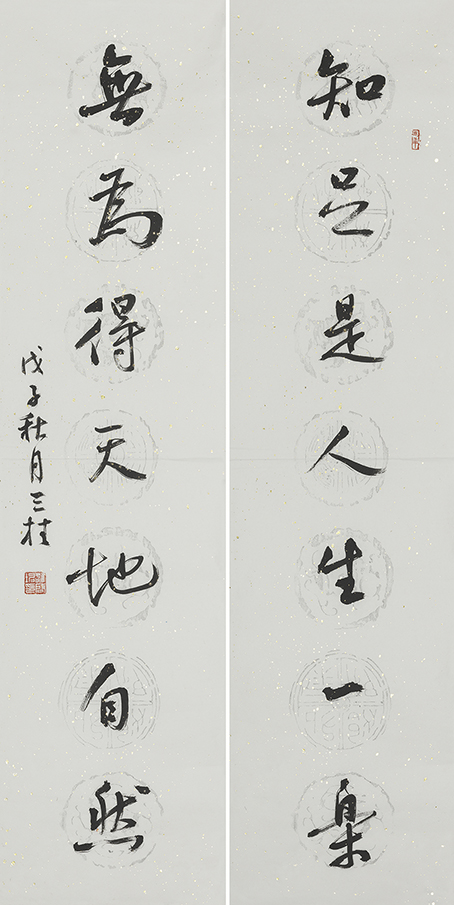 知足是人生一樂
無為得天地自然
戊子秋月三桂